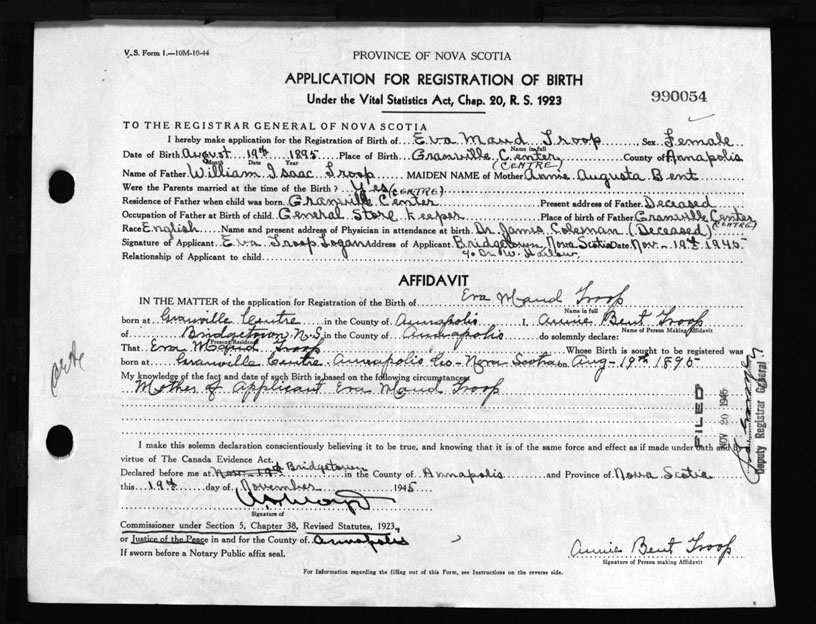 V.S. Form 1.—10M-10-44
PROVINCE OF NOVA SCOTIA
APPLICATION FOR REGISTRATION OF BIRTH
990054
Under the Vital Statistics Act, Chap. 20, R. S. 1923
TO THE REGISTRAR GENERAL OF NOVA SCOTIA
I hereby make application for the Registration of Birth of Eva Maud Troop Sex Female
Name in full
Date of Birth August 19th 1895 Place of Birth Granville Center County of Annapolis
Month Date Year (CENTRE)
Name of Father William Isaac Troop MAIDEN NAME of Mother Annie Augusta Bent
Were the Parents married at the time of the Birth? Yes (CENTRE)
Residence of Father when child was born Granville Center Present address of Father Deceased
Occupation of Father at Birth of child General Store Keeper Place of birth of Father Granville Center
(CENTRE)
Race English Name and present address of Physician in attendance at birth Dr. James Coleman (Deceased)
Signature of Applicant Eva Troop Logan Address of Applicant Bridgetown, Nova Scotia Date Nov. 19th 1945
Relationship of Applicant to child
AFFIDAVIT
IN THE MATTER of the application for Registration of the Birth of Eva Maud Troop
Name in full
born at Granville Centre in the County of Annapolis I, Annie Bent Troop
Name of Person Making Affidavit
of Bridgetown, N.S. in the County of Annapolis do solemnly declare:
Present Residence
That Eva Maud Troop Whose Birth is sought to be registered was
born at Granville Centre, Annapolis Co- Nova Scotia on Aug- 19th 1895
My knowledge of the fact and date of such Birth is based on the following circumstances
Mother of Applicant Eva Maud Troop
FILED
NOV 20 1945
Deputy Registrar General
I make this solemn declaration conscientiously believing it to be true, and knowing that it is of the same force and effect as if made under oath and by
virtue of The Canada Evidence Act.
Declared before me at Nov. 19th Bridgetown in the County of Annapolis and Province of Nova Scotia
this 19th day of November 1945
Signature of
Commissioner under Section 5, Chapter 38, Revised Statutes, 1923,
or Justice of the Peace in and for the County of Annapolis
If sworn before a Notary Public affix seal.
Annie Bent Troop
Signature of Person making Affidavit
For Information regarding the filling out of this Form, see Instructions on the reverse side.